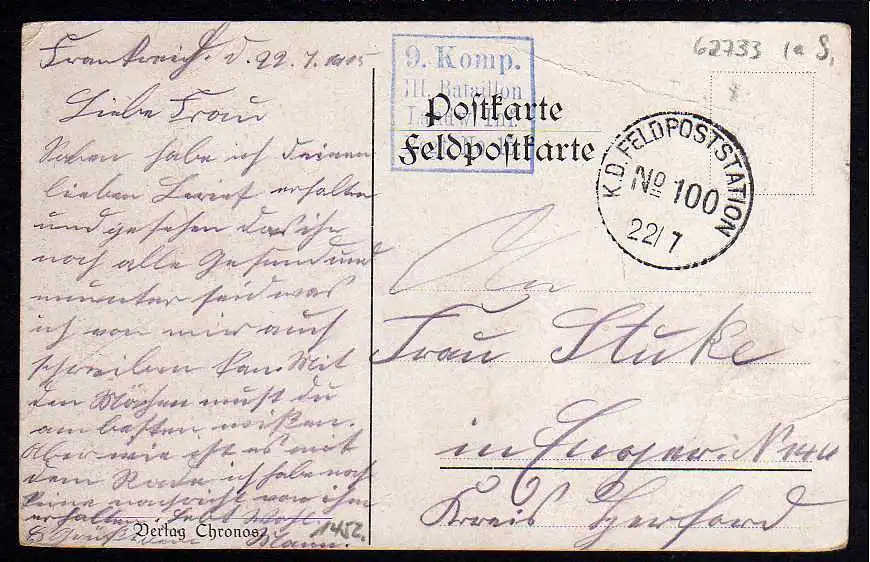 Frankreich. d. 22.7.1915
Liebe Frau
habe ich deinen
lieben Brief erhalten
und gesehen das ihr
noch alle Gesund und
munter seid was
ich von mir auch
schreiben kan. Mit
den must du
am besten wißen.
Aber wie ist es mit
dem ich habe noch
keine nachricht von ihm
erhalten. Lebt Wohl
Mann.
Verlag Chronos
1452.
9. Komp.
III. Bataillon
Landw. Inf.
62733 1a S,
Postkarte
Feldpostkarte
K.D. FELDPOSTSTATION
No 100
22/7
An
Frau Stuke
in Enger i.
Kreis Herford